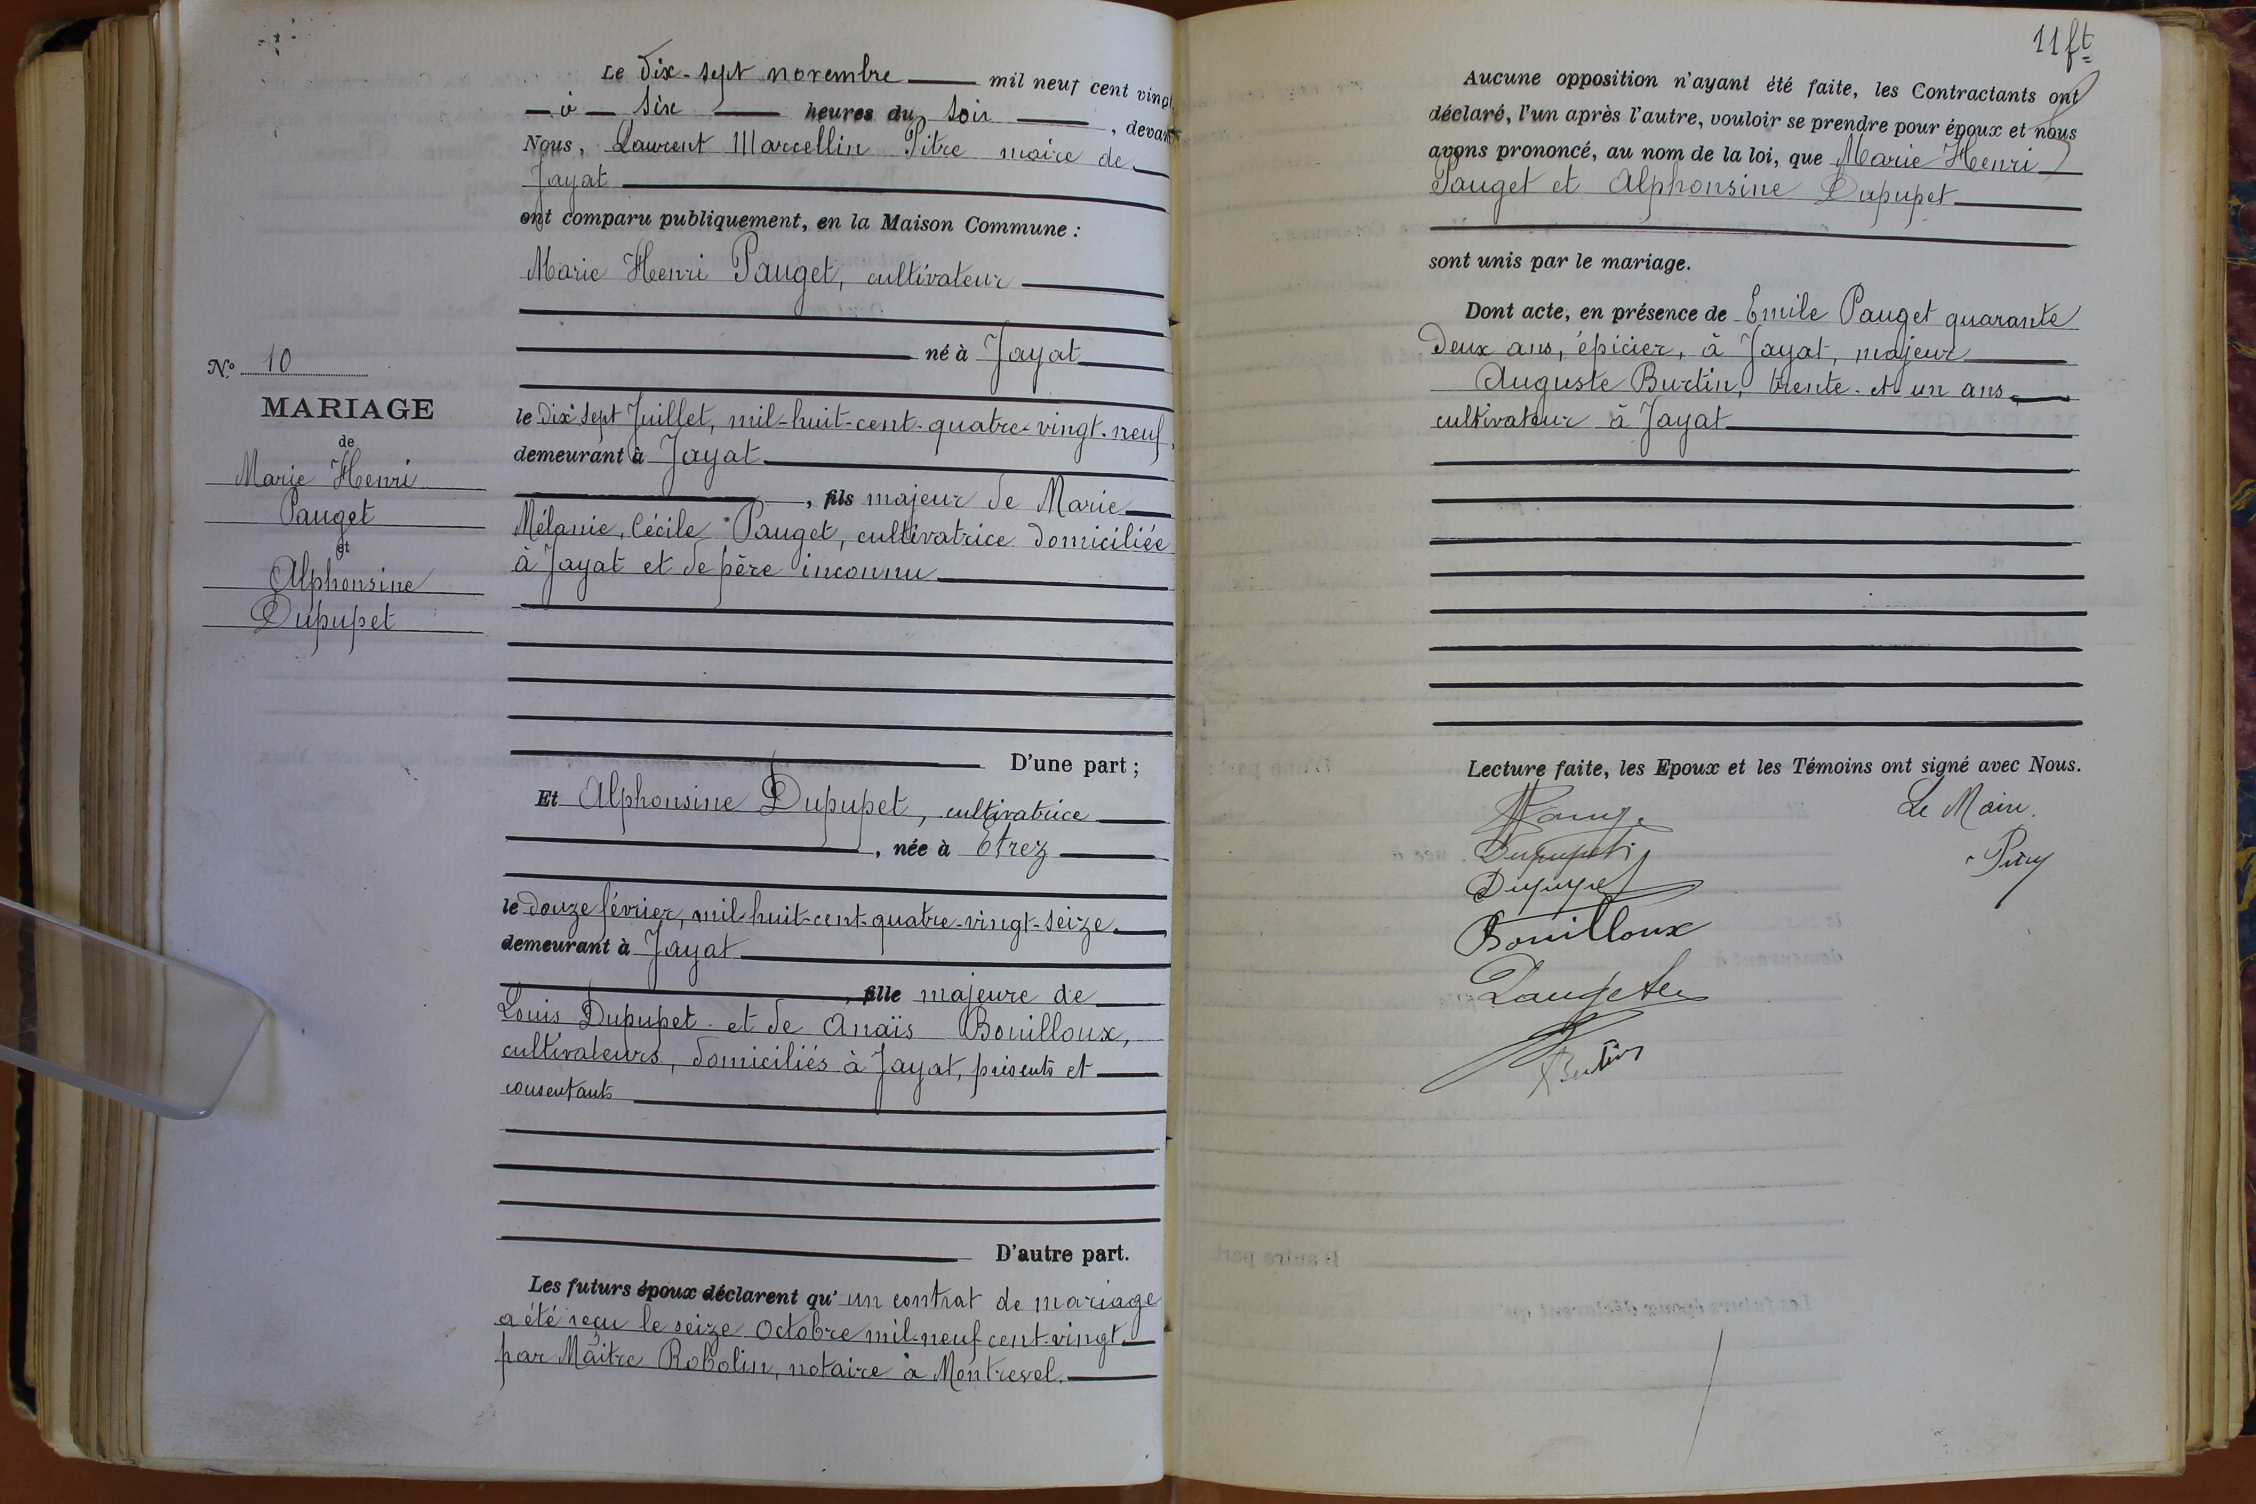 Le dix-sept novembre mil neuf cent vingt
à six heures du soir, devant
Nous, Laurent Marcellin Pitre maire de
Jayat
ont comparu publiquement, en la Maison Commune :
Marie Henri Pauget, cultivateur
né à Jayat
le dix sept Juillet, mil-huit-cent-quatre-vingt-neuf,
demeurant à Jayat
, fils majeur de Marie
Mélanie, Cécile Pauget, cultivatrice domiciliée
à Jayat et de père inconnu
D'une part ;
Et Alphonsine Dupupet, cultivatrice
, née à Etrez
le douze février, mil-huit-cent-quatre-vingt-seize
demeurant à Jayat
, fille majeure de
Louis Dupupet et de Anaïs Bouilloux,
cultivateurs, domiciliés à Jayat, présents et
consentants
D'autre part.
Les futurs époux déclarent qu'un contrat de mariage
a été reçu le seize Octobre mil-neuf cent-vingt
par Maître Robolin, notaire à Montrevel.
N° 10
MARIAGE
de
Marie Henri
Pauget
et
Alphonsine
Dupupet
11 ft
Aucune opposition n'ayant été faite, les Contractants ont
déclaré, l'un après l'autre, vouloir se prendre pour époux et nous
avons prononcé, au nom de la loi, que Marie Henri
Pauget et Alphonsine Dupupet
sont unis par le mariage.
Dont acte, en présence de Emile Pauget quarante
deux ans, épicier, à Jayat, majeur
Auguste Burtin, trente-et-un ans,
cultivateur à Jayat
Lecture faite, les Epoux et les Témoins ont signé avec Nous.
Le Maire.
Dupupet
Bouilloux